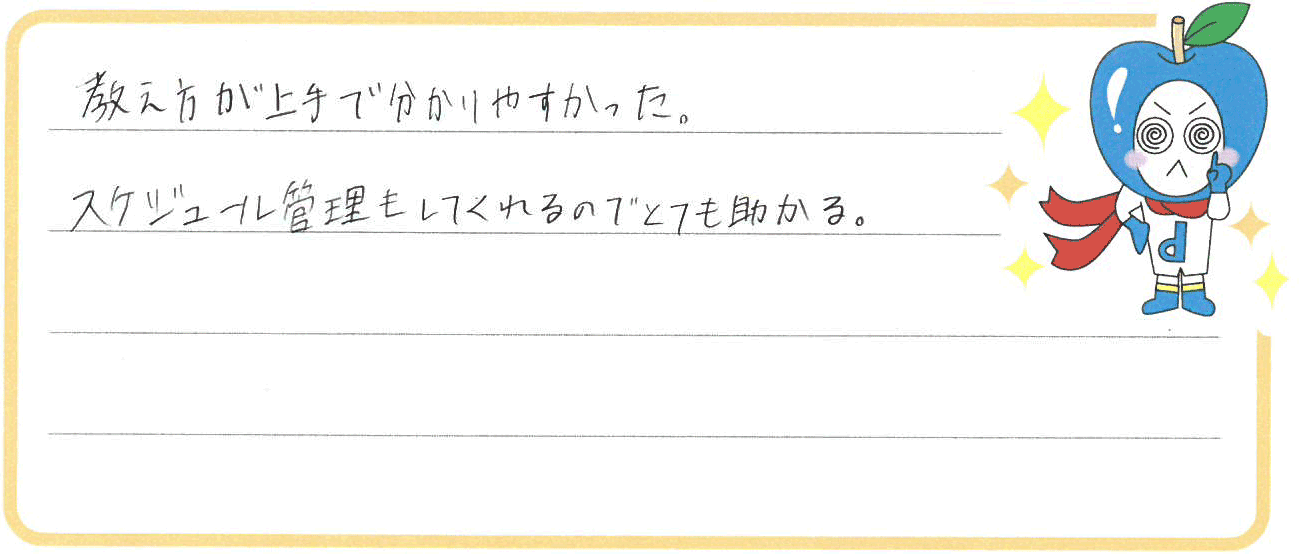 教え方が上手で分かりやすかった。
スケジュール管理もしてくれるのでとても助かる。
d